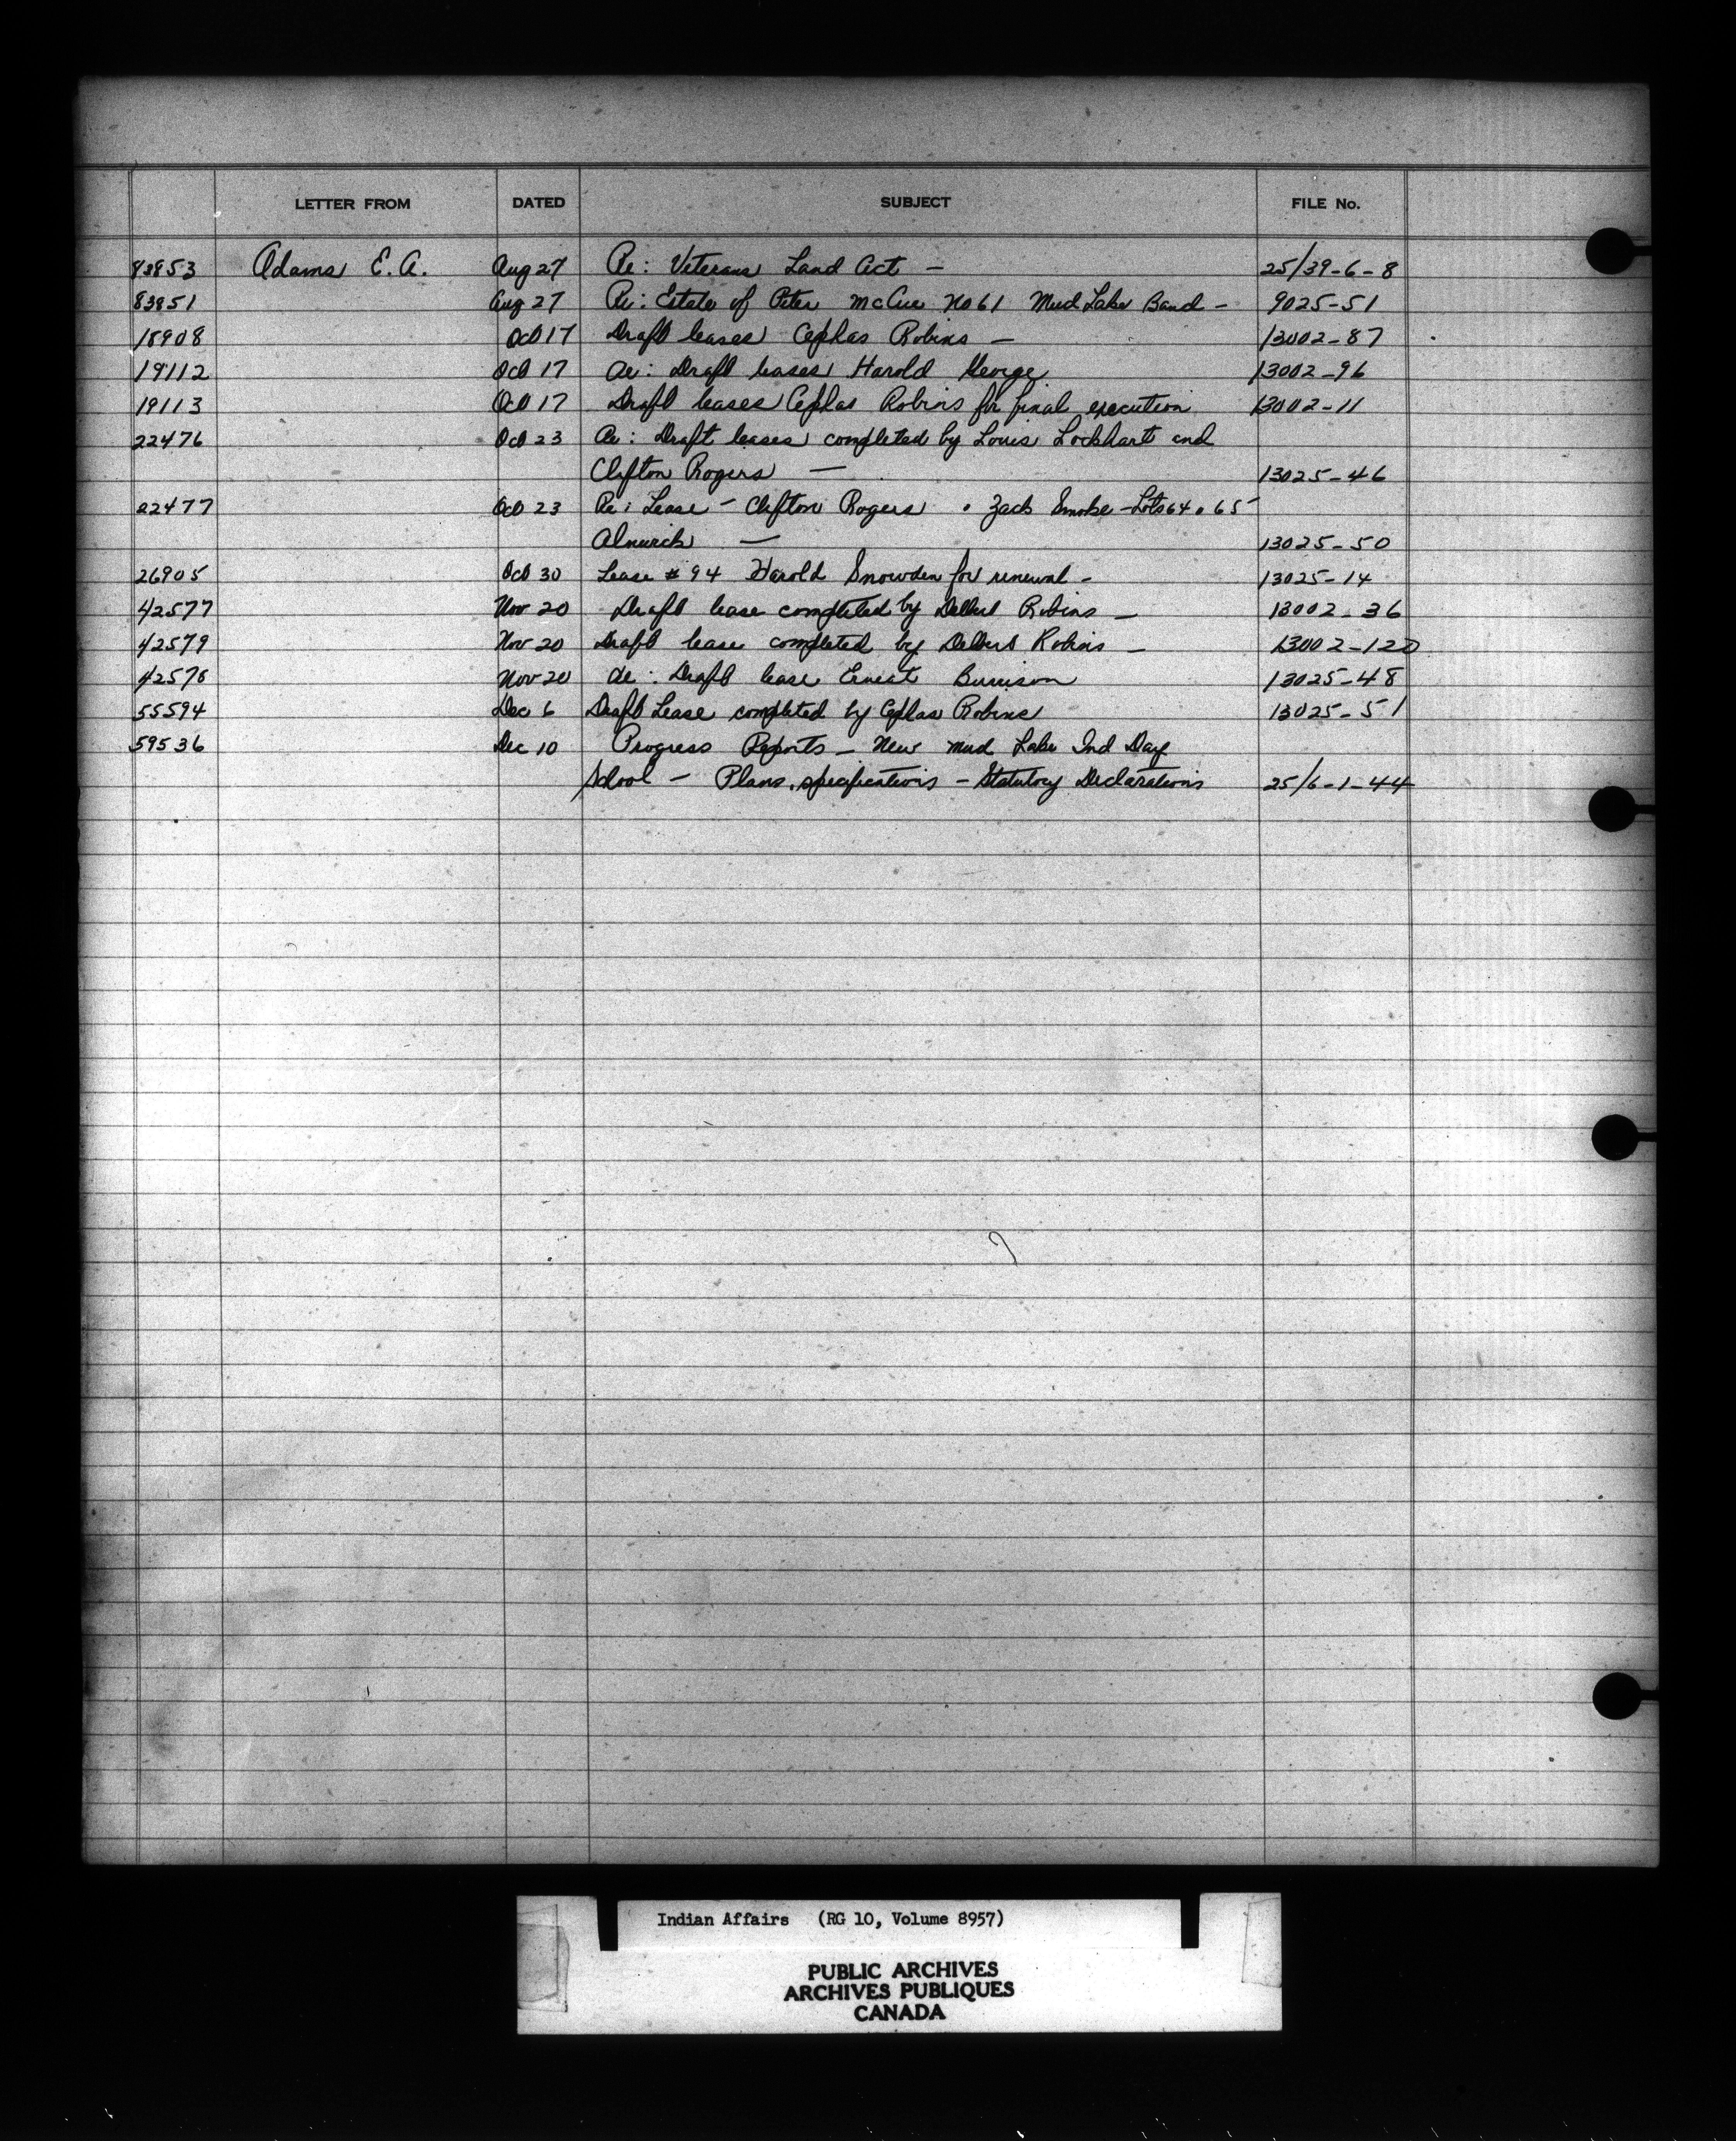 LETTER FROM DATED SUBJECT FILE No.
83853 Adams E. A. Aug 27 Re: Veterans Land Act — 25/39-6-8
83851 Aug 27 Re: Estate of Peter McCue No 61 Mud Lake Band — 9025-51
18908 Oct 17 Draft leases Cephas Robins — 13002-87
19112 Oct 17 Re: Draft leases Harold George 13002-96
19113 Oct 17 Draft leases Cephas Robins for final execution 13002-11
22476 Oct 23 Re: Draft leases completed by Louis Lockhart and
Clifton Rogers — 13025-46
22477 Oct 23 Re: Lease - Clifton Rogers . Zack Smoke - Lots 64 . 65
Alnwick — 13025-50
26905 Oct 30 Lease #94 Harold Snowden for renewal - 13025-14
42577 Nov 20 Draft lease completed by Delbert Robins — 13002-36
42579 Nov 20 Draft lease completed by Delbert Robins — 13002-120
42578 Nov 20 Re: Draft lease Ernest 13025-48
55594 Dec 6 Draft Lease completed by Cephas Robins 13025-51
59536 Dec 10 Progress Reports — New Mud Lake Ind Day
School — Plans, specifications — Statutory Declarations 25/6-1-44
Indian Affairs (RG 10, Volume 8957)
PUBLIC ARCHIVES
ARCHIVES PUBLIQUES
CANADA